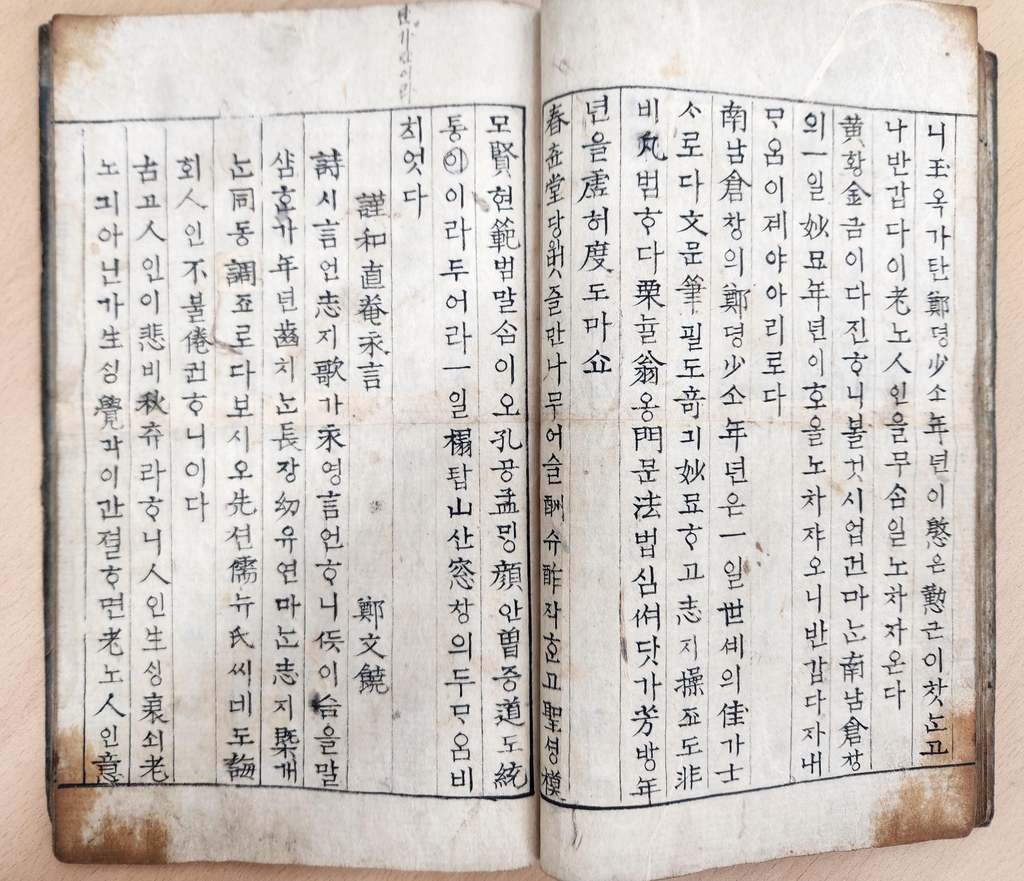 니玉옥가탄鄭뎡少소年년이慇은懃근이찻ᄂᆞ고
나반갑다이老노人인을무ᄉᆞᆷ일노차자온다
黄황金금이다진ᄒᆞ니볼것시업건마ᄂᆞᆫ南남倉창
의一일妙묘年년이호을노차쟈오니반갑다자내
ᄆᆞ옴이졔야아리로다
南남倉창의鄭뎡少소年년은一일世셰의佳가士
ᄉᆞ로다文문筆필도竒긔妙묘ᄒᆞ고志지操죠도非
비凡범ᄒᆞ다栗뉼翁옹門문法법심셔닷가芳방年
년을虛허度도마쇼
春츈堂당윗즐만나무어슬酬슈酢작ᄒᆞ고聖셩模
모賢현範범말ᄉᆞᆷ이오孔공孟ᄆᆡᆼ顔안曽증道도統
통이이라두어라一일榻탑山산窓창의두ᄆᆞ옴비
최엿다
謹和直菴永言 鄭文饒
詩시言언志지歌가永영言언ᄒᆞ니이ᄉᆞᆷ을말
삼ᄒᆞᆫ가年년齒치ᄂᆞᆫ長장幼유연마ᄂᆞᆫ志지槩개
ᄂᆞᆫ同동調죠로다보시오先션儒뉴氏씨비도誨
회人인不불倦권ᄒᆞ니이다
슬고人인이悲비秋츄라ᄒᆞ니人인生ᄉᆡᆼ衰쇠老
노긔아닌가生ᄉᆡᆼ覺각이간졀ᄒᆞ면老노人인意